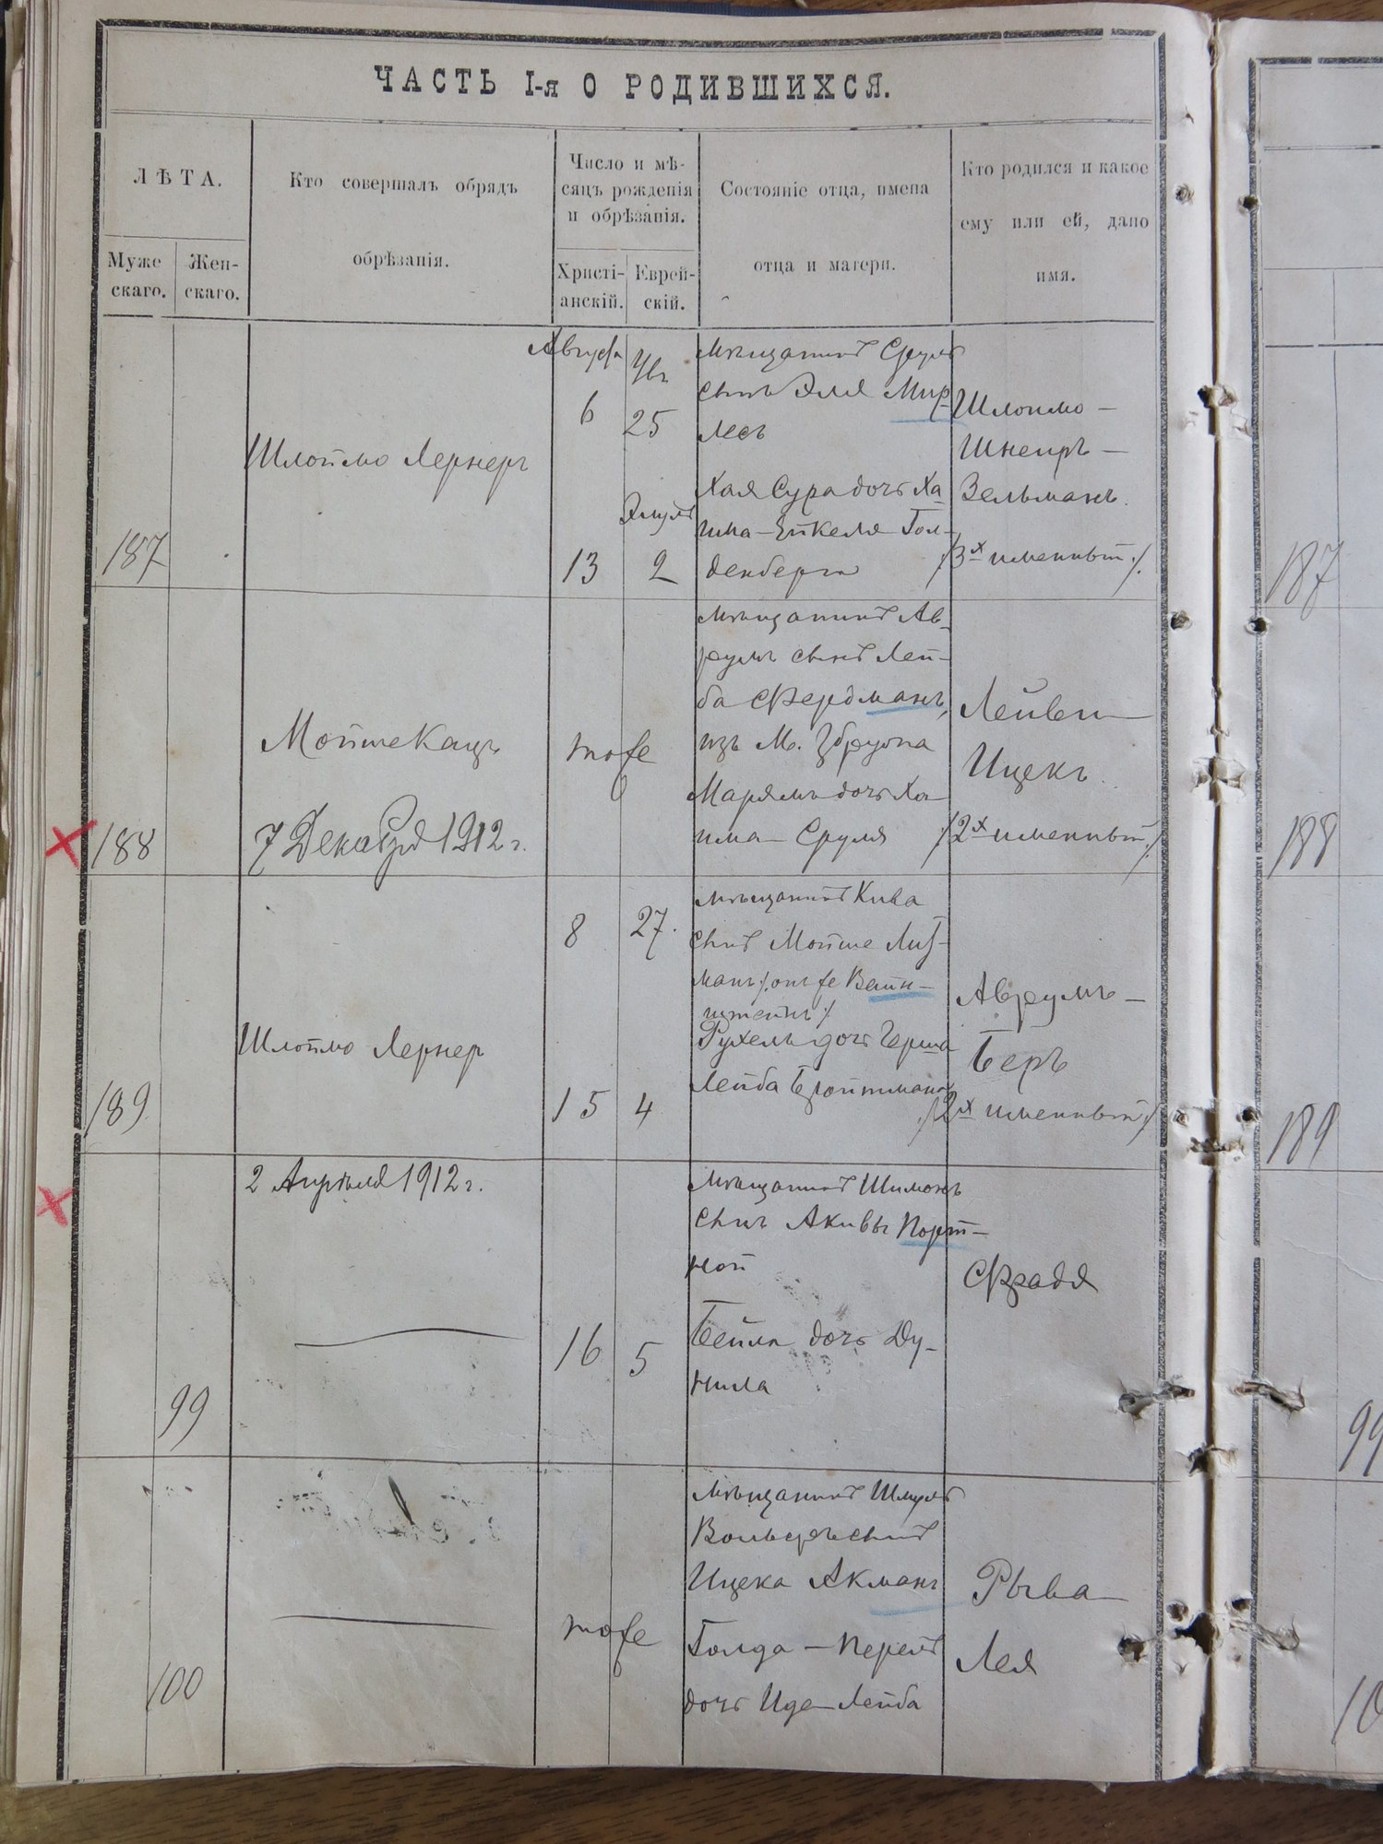 ЧАСТЬ I-я О РОДИВШИХСЯ.
ЛѢТА.
Муже
скаго.
Жен-
скаго.
Кто совершалъ обрядъ
обрѣзанія.
Число и мѣ-
сяцъ рожденія
и обрѣзанія.
Христі-
анскій.
Еврей-
скій.
Состояніе отца, имена
отца и матери.
Кто родился и какое
ему или ей, дано
имя.
187
Шлоймо Лернеръ
Августа
6
13
25
Элулъ
2
Мѣщанинъ Сруль
сынъ Эля Мир
лесъ
Хая Сура дочь Ха
има-Янкеля Гол-
денберга
Шлоимо-
Шнеиръ-
Зельманъ.
/3х именный/.
187
188
Мойше Кацъ
7 Декабря 1912 г.
тоже
Мѣщанинъ Ав-
румъ сынъ Лей-
ба Фердманъ,
изъ М.
Марямъ дочь Ха
има Сруля
Лейве
Ицекъ.
/2х именный/.
188
189
Шлоймо Лернер
8
15
27.
4
Мѣщанинъ Кива
сынъ Мойше Лиз-
манъ /. онъ же Вайн-
штейнъ /
Рухель дочь Герша
Лейба Бройтмана
Аврумъ-
Беръ
/2х именный/
189
99
2 Апрѣля 1912 г.
16
5
Мѣщанинъ Шимонъ
сынъ Акивы Порт-
ной
Бейла дочь Ду-
нила
Фрадя
99
100
тоже
Мѣщанинъ Шмуль
Вольфъ сынъ
Ицека Акманъ
Голда-Перель
дочь Иде Лейба
Рыва
Лея
10